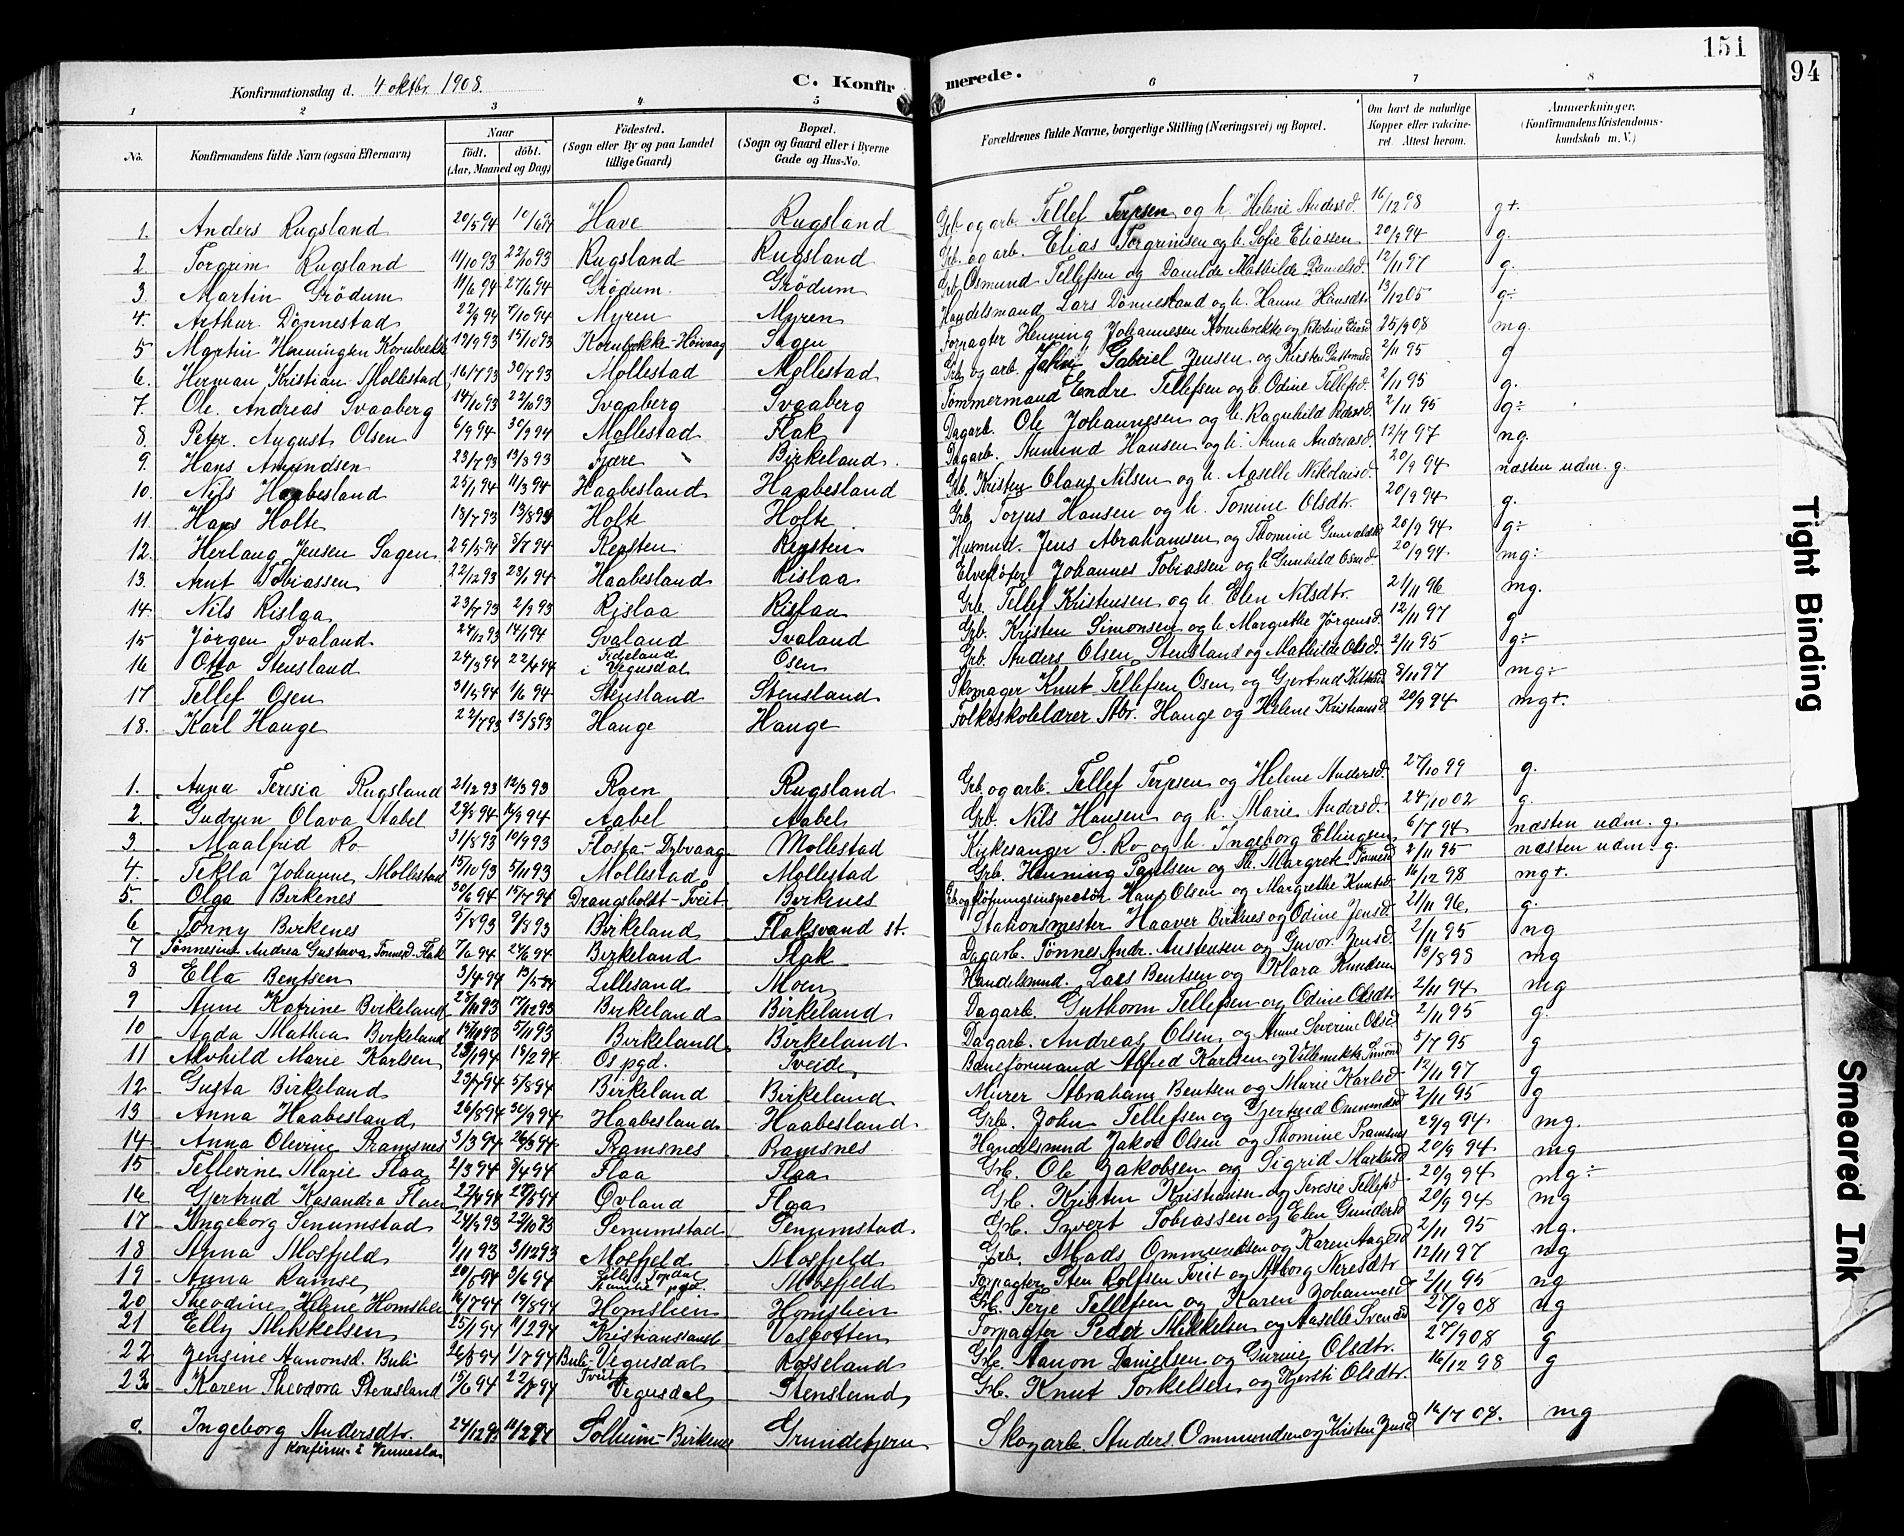 151
94
Konfirmationsdag d. 4 oktbr. 1908.
C. Konfirmerede.
1 2 3 4 5 6 7 8
No. Konfirmandens fulde Navn (ogsaa Efternavn) Naar født. døbt. (Aar, Maaned og Dag) Fødested. (Sogn eller By og paa Landet tillige Gaard) Bopæl. (Sogn og Gaard eller i Byerne Gade og Hus-No. Forældrenes fulde Navne, borgerlige Stilling (Næringsvei) og Bopæl. Om havt de naturlige Kopper eller vakcineret. Attest herom. Anmærkninger. (Konfirmandens Kristendomskundskab m. V.)
1. Anders Rugsland 20/5 94 10/6 94 Have Rugsland Grb og arb. Tellef Terjesen og h. Helene Andersd. 16/12 98 g+.
2 Torgrim Rugsland 11/10 93 22/10 93 Rugsland Rugsland Grb. og arb. Elias Torgrimsen og h. Sofie Eliassen 20/9 94 g.
3. Martin Grödum 11/6 94 27/6 94 Grödum Grödum Grb. Osmund Tellefsen og Danilde Mathilde Danielsd. 12/11 97 g.
4. Arthur Dönnestad 22/9 94 7/10 94 Myren Myren Handelsmand Lars Dönnestand og h. Hanne Hansdtr 13/12 05 g÷
5 Martin Henningsen Kornbrekke 17/9 93 15/10 93 Kornbrekke-Höivaag Sagen Forpagter Henning Johannesen Kornbrekke og Nikoline 25/9 08 mg.
6. Herman Kristian Mollestad 16/7 93 30/7 93 Mollestad Mollestad Grb og arb. Gabriel Jensen og Kirstie 2/11 95 g
7. Ole Andreas Svaaberg 14/10 93 22/10 93 Svaaberg Svaaberg Tömmermand Endre Tellefsen og h. Odine Tellefsd. 2/11 95 g.
8. Peter August Olsen 6/9 94 30/9 94 Mollestad Flak Dagarb. Ole Johannesen og h. Ragnhild 2/11 95 g÷
9. Hans Amundsen 23/7 93 13/8 93 Fjære Birkeland. Dagarb. Aumund Hansen og h. Anna Andreasd. 12/9 97 ng.
10. Nils Haabesland 25/1 94 11/3 94 Haabesland Haabesland Grb. Kristen Olaus Nilsen og h. Aaselle Nikolaisd. 20/9 94 næsten udm. g.
11. Hans Holte 13/7 93 13/8 93 Holte Holte. Grb. Torjus Hansen og h. Tomine Olsdtr. 20/9 94 g.
12. Herlaug Jensen Sagen 29/5 94 8/7 94 Repsten Repsten Husmnd. Jens Abrahamsen og Thomine 20/9 94 g÷
13. Arnt Tobiassen 22/12 93 23/1 94 Haabesland Rislaa Elvefløter Johannes Tobiassen og h Gunhild Osmd. 20/9 94. mg÷
14. Nils Rislaa 23/7 93 2/9 93 Rislaa Rislaa Grb. Tellef Kristensen og h. Elen Nilsdtr. 21/11 96 mg.
15 Jörgen Svaland 24/12 93 14/1 94 Svaland Svaland Grb. Kristen Simonsen og h. Margrethe Jörgensd. 12/11 97 g
16 Otto Stensland 24/3 94 22/4 94 i Vegusdal Osen Grb. Anders Olsen Stensland og Mathilde Olsd. 2/11 95 g÷
17 Tellef Osen 31/5 94 1/6 94 Stensland Stensland Skomager Knut Tellefsen Osen og Gjertrud 8/11 97 mg÷
18. Karl Hauge 22/7 93 13/8 93 Hauge Hauge Folkeskolelærer Abr. Hauge og Helene Kristiansd 20/9 94 mg+.
1. Anna Teresia Rugsland 21/2 93 12/3 93 Roen Rugsland Grb. og arb. Tellef Terjesen og Helene Andersd. 27/10 99 g.
2. Gudrun Olava Aabel 27/8 94 16/9 94 Aabel Aabel Grb. Nils Hansen og h. Marie Andersd. 24/10 02 g.
3 Maalfrid Ro 31/8 93 10/9 93 Flosta-Dybvaag Mollestad Kirkesanger S. Ro og h. Ingeborg Ellingsen 6/7 94 næsten udm. g.
4. Tekla Johanne Mollestad 15/10 93 5/11 93 Mollestad Mollestad Grb. Henning Paulsen og Margrete 2/11 95 næsten udm. g
5. Olga Birkenes 30/6 94 15/7 94 Drangsholdt-Tveit Birkenes Grb og fløtningsinspectör Hans Olsen og Margrethe Knutsd. 16/12 98 mg+.
6 Tönny Birkenes 5/8 93 9/8 93 Birkeland Flaksvand st. Stationsmester Haaver Birknes og Odine Jensd. 21/11 96. g.
7 Tönnesine Andrea Gustava Flak 7/6 94 24/6 94 Birkeland Flak Dagarb. Tönnes Andr. Austensen og Guvor Jensd. 2/11 95 ng
8 Ella Bentsen 3/4 94 13/5 94 Lillesand Moen Handelsmnd. Lars Bentsen og Klara Knudsen 19/8 98 mg
9 Anne Katrine Birkeland 25/11 93 17/12 93 Birkeland Birkeland Dagarb. Guthorm Tellefsen og Odine Olsdtr 2/11 94 mg
10 Agda Mathea Birkeland 15/10 93 5/11 93 Birkeland Birkeland Dagarb. Andreas Olsen og Anne Severine Olsd 2/11 95 g.
11 Alvhild Marie Karlsen 23/1 94 18/2 94 Os pgd. Tveide Baneformand Alfred Karlsen og Villemikke 5/7 95 g
12 Gusta Birkeland 23/7 94 5/8 94 Birkeland Birkeland Murer Abraham Bentsen og Marie Karlsd 12/11 97 g
13 Anna Haabesland 26/8 94 30/9 94 Haabesland Haabesland Grb. John Tellefsen og Gjertrud Ommundsd 2/11 95 g
14 Anna Olevine Ramsnes 3/3 94 26/3 94 Ramsnes Ramsnes Handelsmnd Jakob Olsen og Thomine Ramsnes 29/9 94 mg.
15 Tellevine Marie Flaa 2/3 94 8/4 94 Flaa Flaa Grb. Ole Jakobsen og Sigrid 20/9 94 mg
16 Gjertrud Kasandra Flaa 27/4 94 27/5 94 Øvland Flaa Grb. Kristen Kristiansen og Teresie Tellefsd 20/9 94 mg÷
17 Ingeborg Senumstad 24/9 93 22/10 93 Senumstad Senumstad Grb. Syvert Tobiassen og Elen Gundersd 20/9 94 mg
18 Anna Mosfjeld 1/11 93 3/12 93 Mosfjeld Mosfjeld Grb. Mads Ommundsen og Karen Aagesd 2/11 95 ng.
19 Anna Ramse 20/5 94 3/6 94 Lille Topdal pgd. Mosfjeld Forpagter Sten Rolfsen Tveit og Alborg Neresdtr 12/11 97 mg
20 Theodine Helene Homslien 16/7 94 19/8 94 Homslien Homslien Grb. Terje Tellefsen og Karen Johannesd 2/11 95 ng
21 Elly Mikkelsen 25/1 94 11/2 94 Kristianssand Vasbotten Forpagter Peder Mikkelsen og Aaselle Svensd 27/9 08 ng
22 Jensine Aanonsd. Buli 26/5 94 1/7 94 Buli-Vegusdal Rosseland Grb. Aanon Danielsen og Gurine Olsdtr. 27/9 08 g
23 Karen Theodora Stensland 15/6 94 22/7 94 Tveit Vegusdal Stensland Grb. Knut Torkelsen og Kjersti Olsdtr. 16/12 98 g
a. Ingeborg Andersdtr. 24/12 93 11/2 94 Solheim-Birkenes Grundetjern Skogarb. Anders Ommundsen og Kirsten Jensd 16/7 08. mg
konfirm. i Vennesla
Tight Binding
Smeared Ink